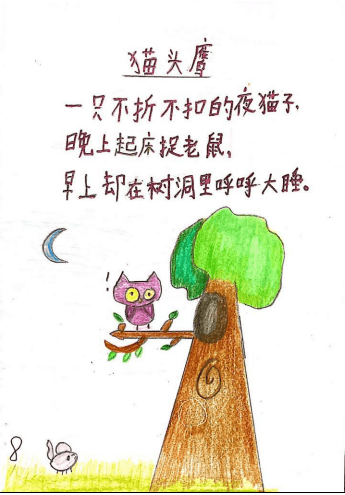 猫头鹰
一只不折不扣的夜猫子,
晚上起床捉老鼠,
早上却在树洞里呼呼大睡。
!
8